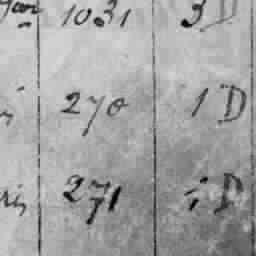 1031 3D
270 1D
271 1D